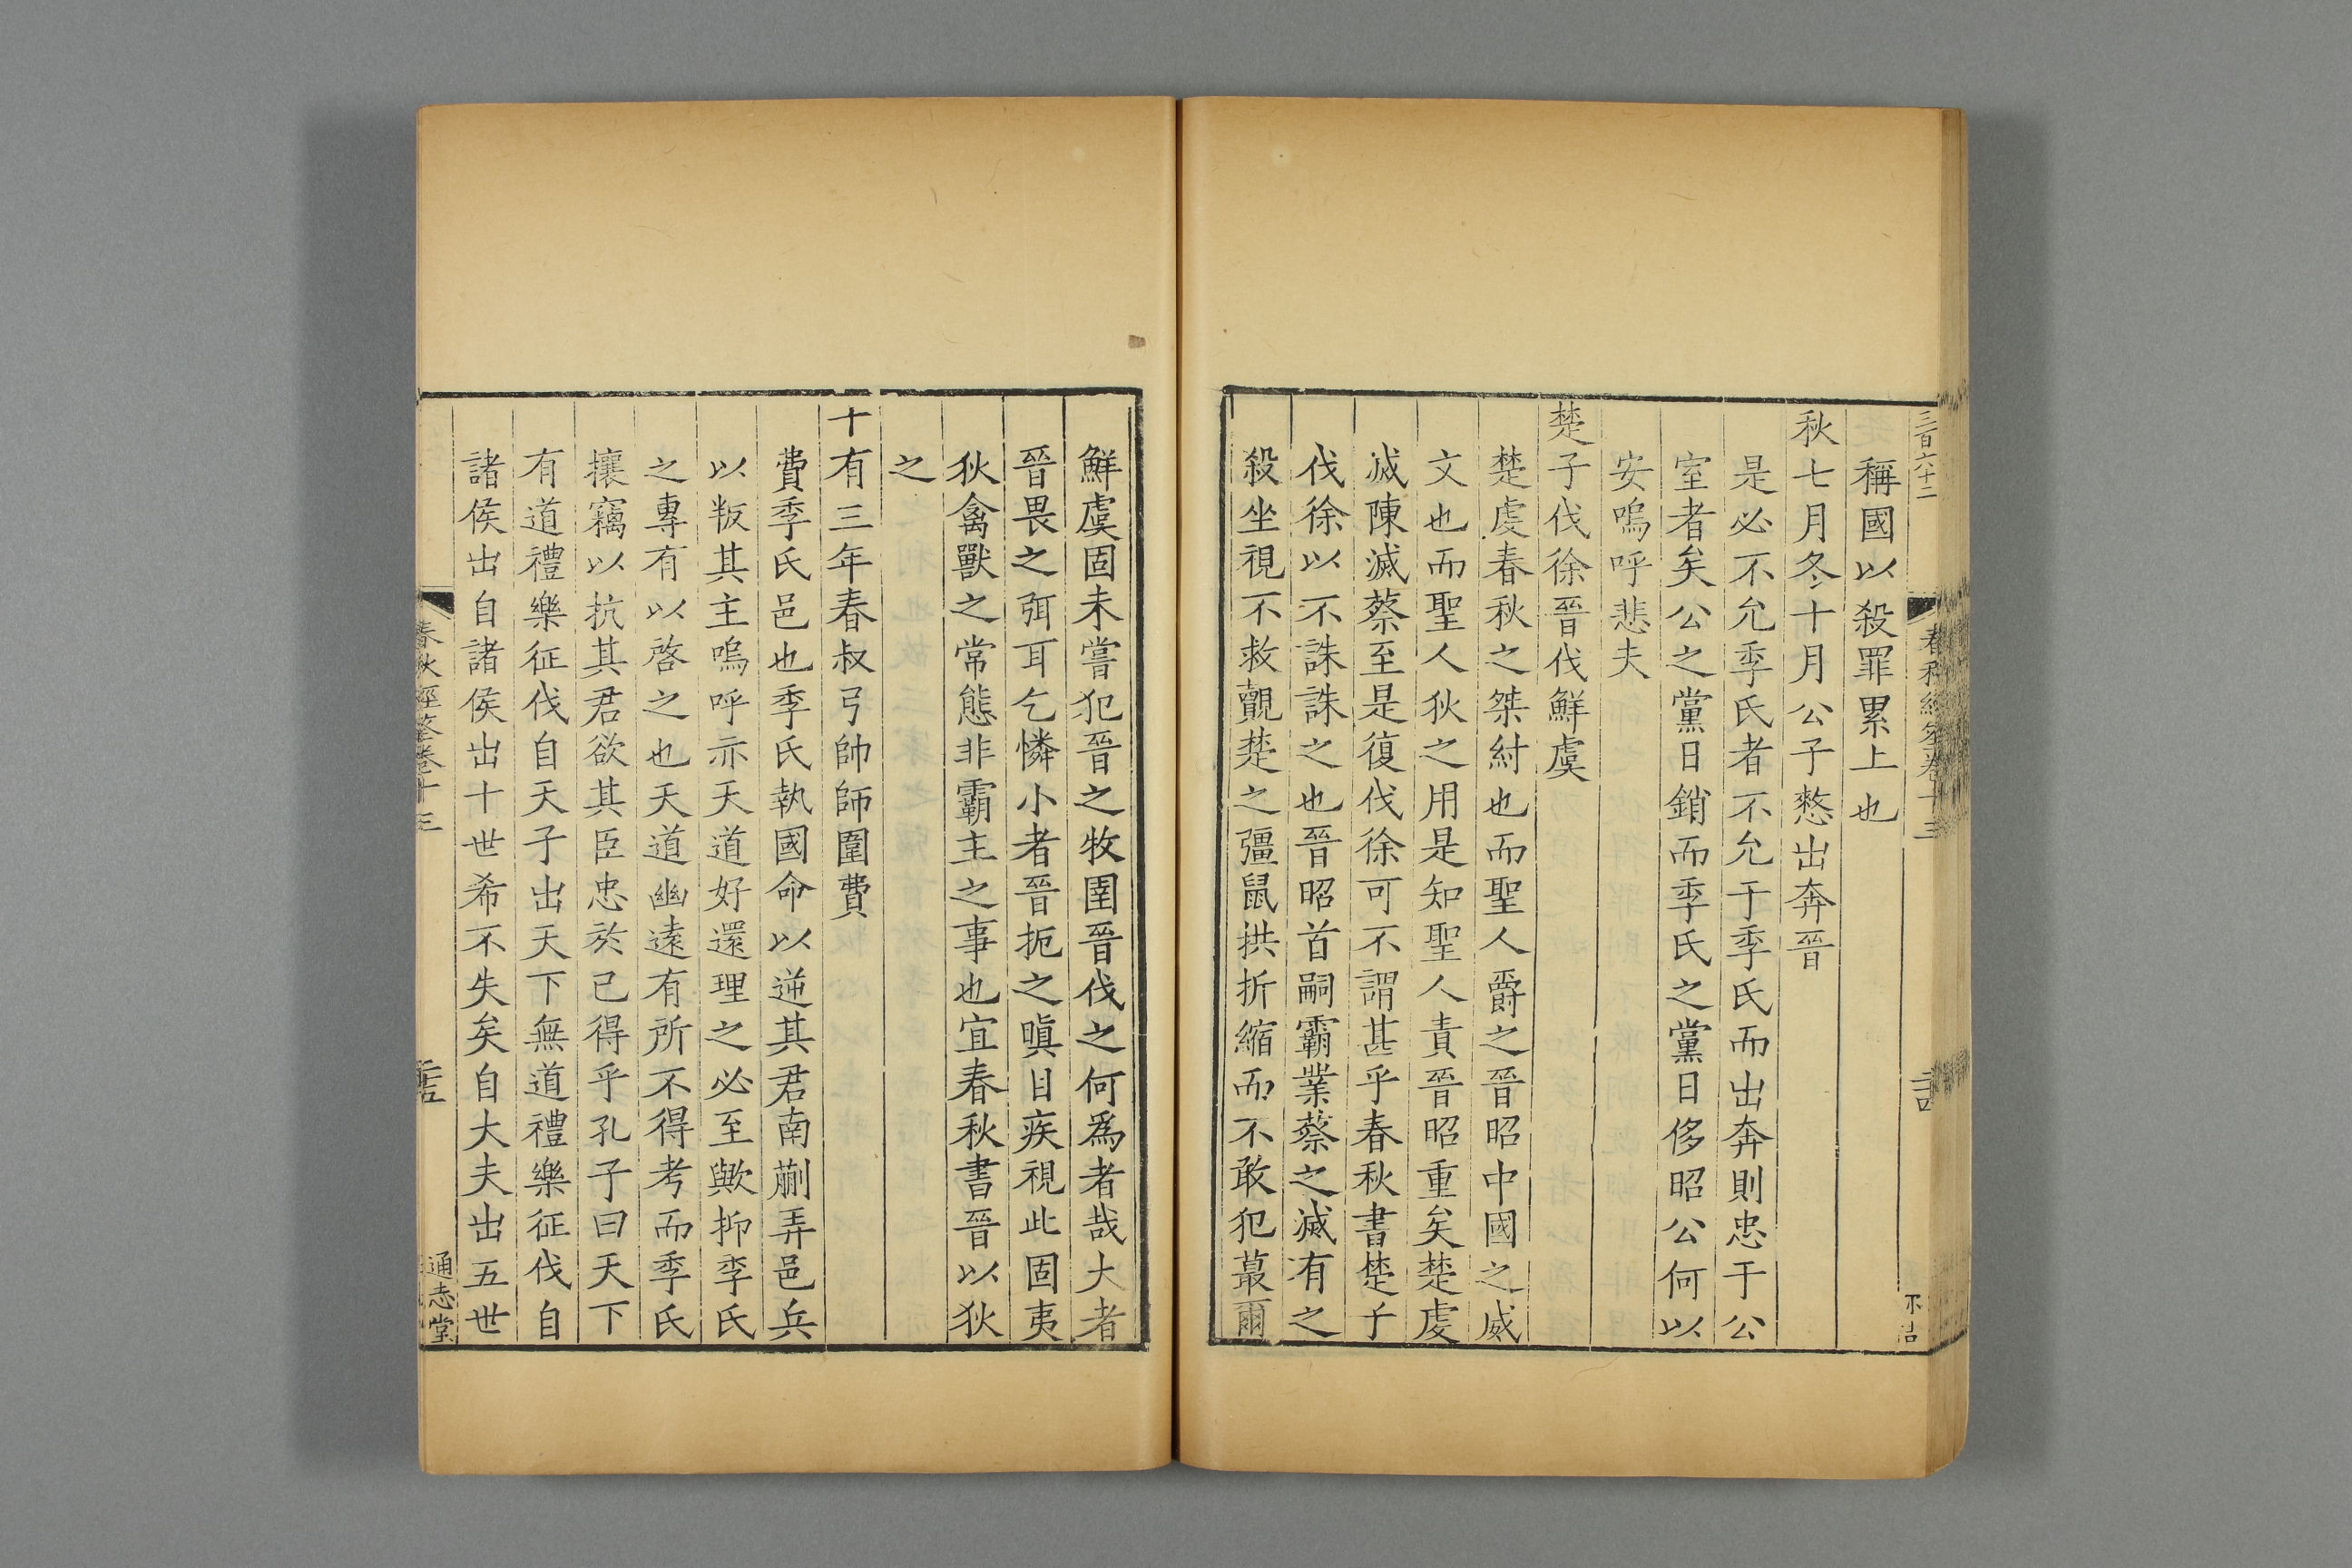 三百六十二
稱國以殺罪累上也
秋七月冬十月公子憗出奔晉
是必不允季氏者不允于季氏而出奔則忠于公
室者矣公之黨日銷而季氏之黨日侈昭公何以
安嗚呼悲夫
楚子伐徐晉伐鮮虞
楚虔春秋之桀紂也而聖人爵之晉昭中國之威
文也而聖人狄之用是知聖人責晉昭重矣楚虔
滅陳滅蔡至是復伐徐可不謂甚乎春秋書楚子
伐徐以不誅誅之也晉昭首嗣霸業蔡之滅有之
殺坐視不救覿楚之彊鼠拱折縮而不敢犯蕞爾
鮮虞固未嘗犯晉之牧圉晉伐之何爲者哉大者
晉畏之弭耳乞憐小者晉扼之瞋目疾視此固夷
狄禽獸之常態非霸主之事也宜春秋書晉以狄
之
十有三年春叔弓帥師圍費
費季氏邑也季氏執國命以逆其君南蒯弄邑兵
以叛其主嗚呼亦天道好還理之必至歟抑季氏
之專有以啓之也天道幽遠有所不得考而季氏
攘竊以抗其君欲其臣忠於己得乎孔子曰天下
有道禮樂征伐自天子出天下無道禮樂征伐自
諸侯出自諸侯出十世希不失矣自大夫出五世
春秋經筌卷十三
通志堂